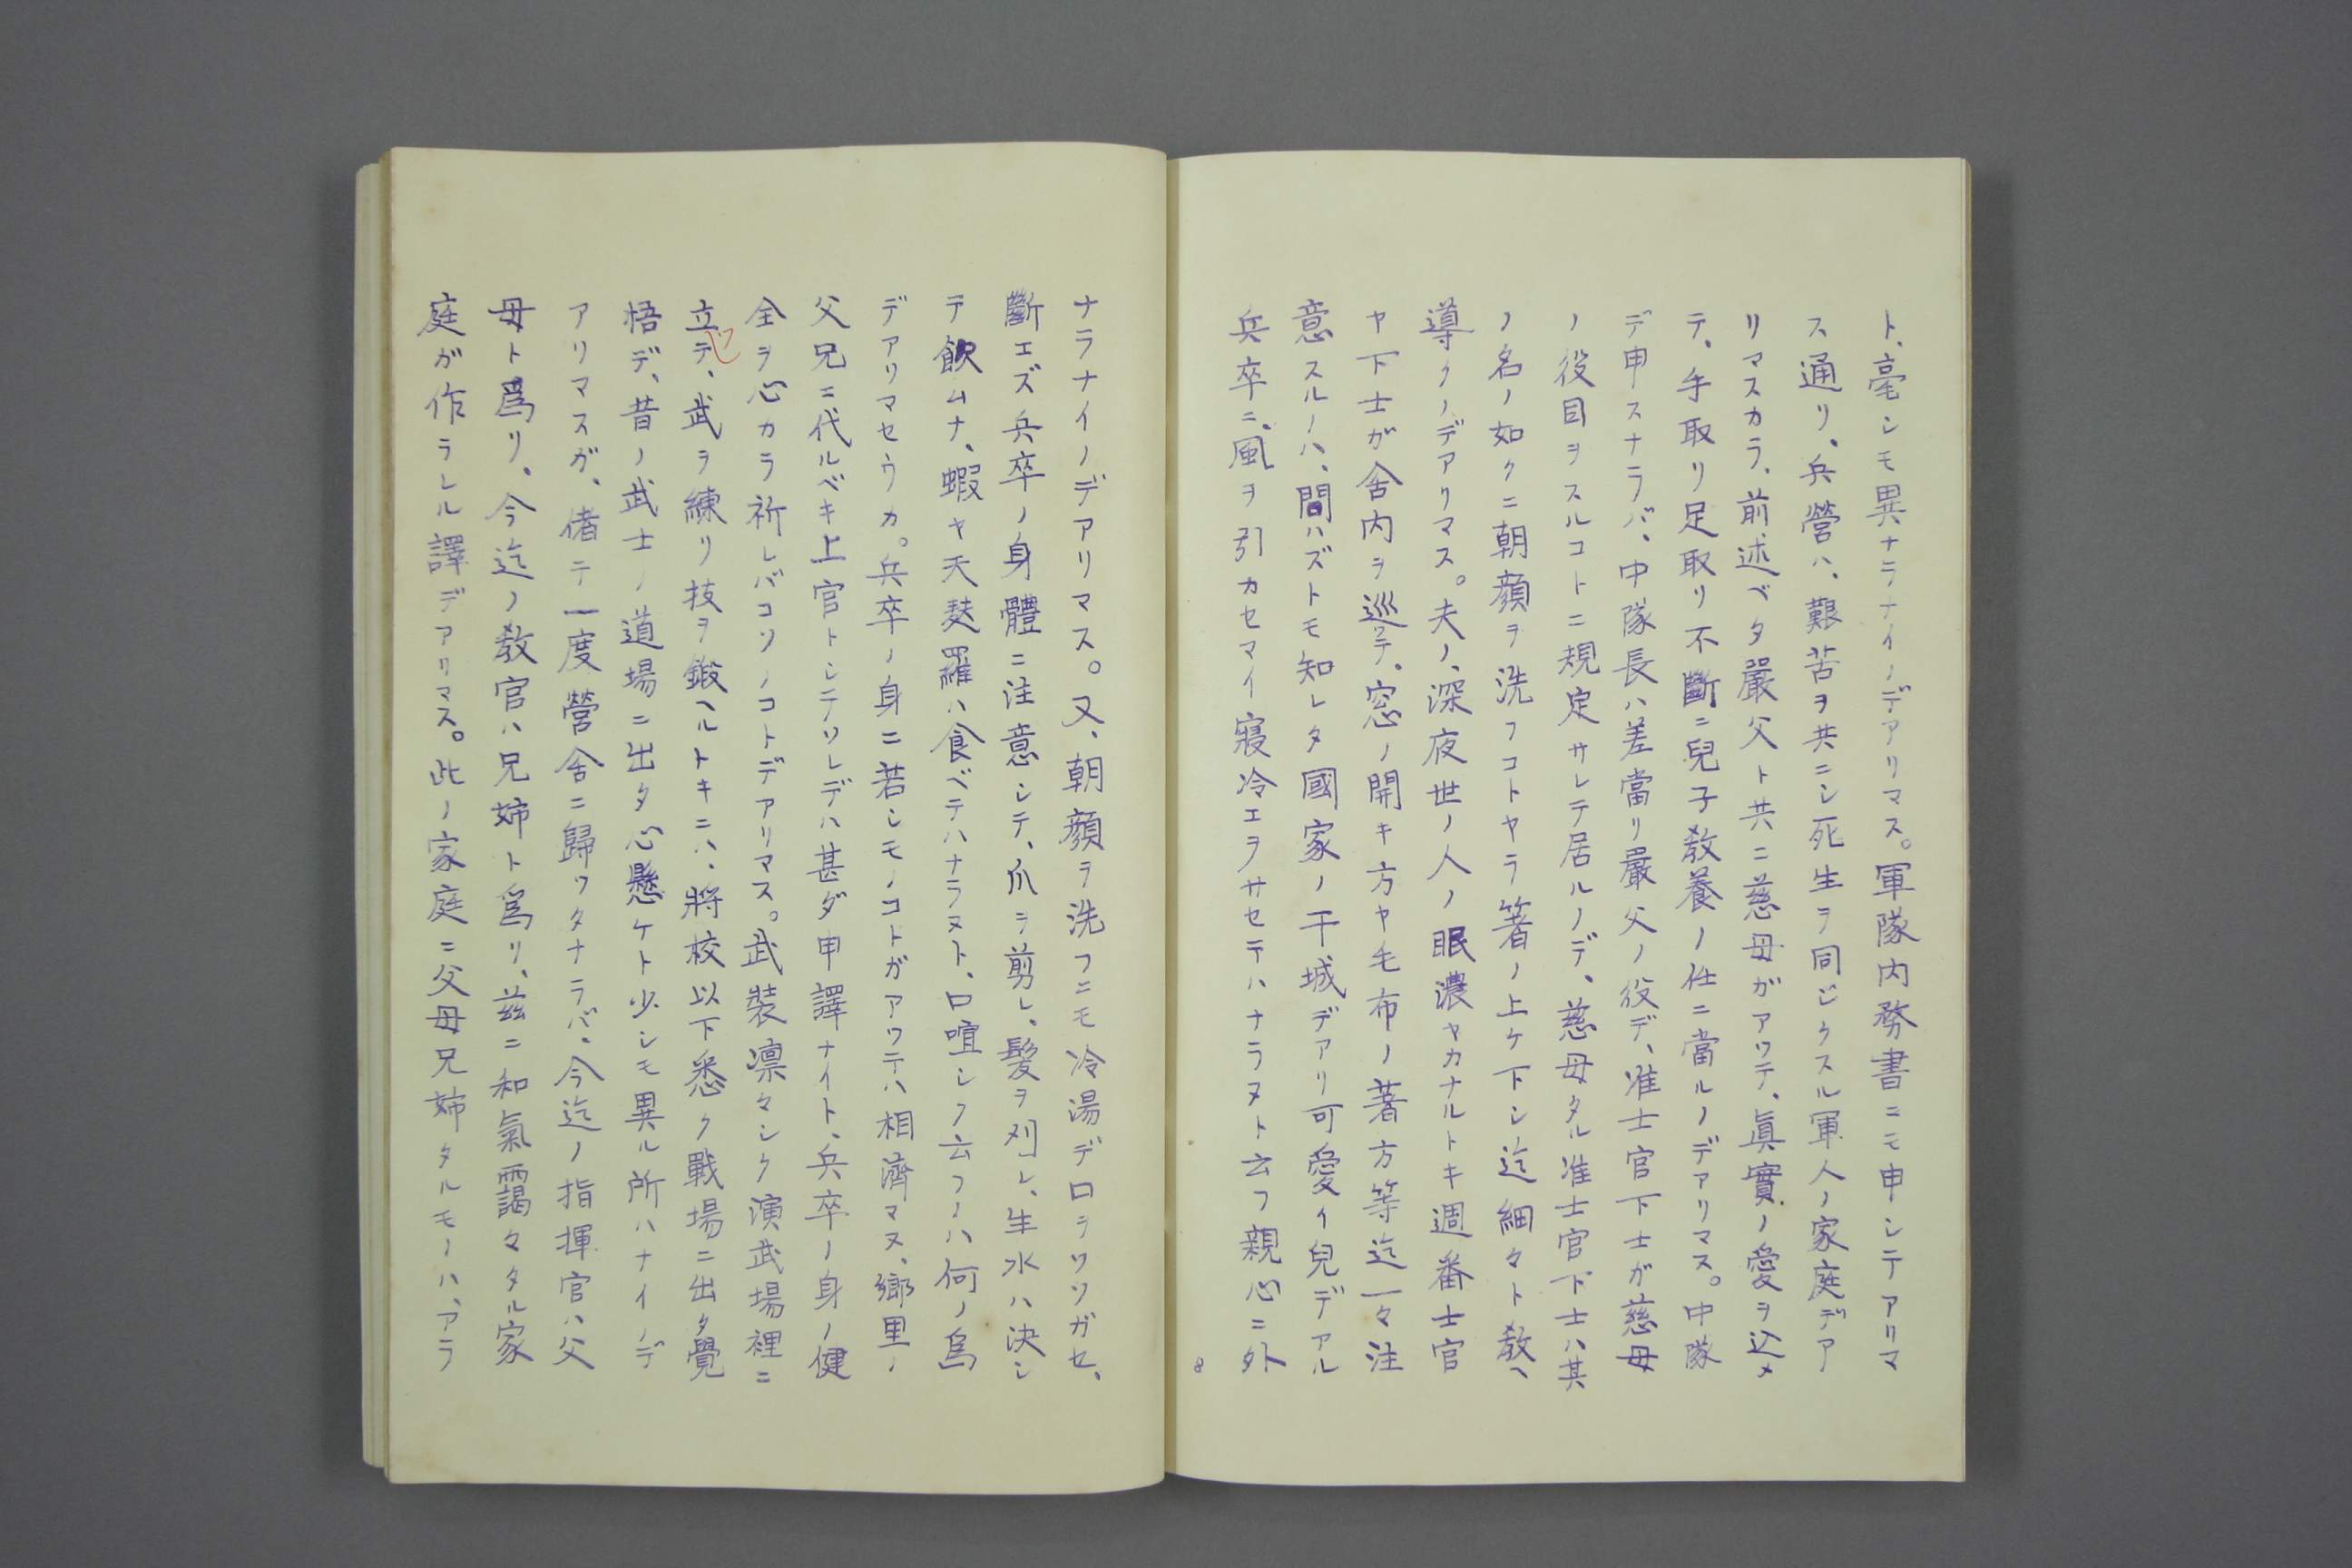 ト、毫シモ異ナラナイノデアリマス。軍隊内務書ニモ申シテアリマ
ス通リ、兵營ハ、艱苦ヲ共ニシ死生ヲ同ジクスル軍人ノ家庭デア
リマスカラ、前述ベタ嚴父ト共ニ慈母ガアツテ、眞實ノ愛ヲ込メ
テ、手取リ足取リ不斷ニ兒子教養ノ任ニ當ルノデアリマス。中隊
デ申スナラバ、中隊長ハ差當リ嚴父ノ役デ、准士官下士ガ慈母
ノ役目ヲスルコトニ規定サレテ居ルノデ、慈母タル准士官下士ハ其
ノ名ノ如クニ朝顔ヲ洗フコトヤラ箸ノ上ケ下シ迄細々ト教ヘ
導クノデアリマス。夫ノ、深夜世ノ人ノ眠濃ヤカナルトキ週番士官
ヤ下士ガ舍内ヲ巡ツテ、窓ノ開キ方ヤ毛布ノ著方等迄一々注
意スルノハ、問ハズトモ知レタ國家ノ干城デアリ可愛イ兒デアル
兵卒ニ、風ヲ引カセマイ寢冷エヲサセテハナラヌト云フ親心ニ外
8
ナラナイノデアリマス。又、朝顔ヲ洗フニモ冷湯デ口ヲソソガセ、
斷エズ兵卒ノ身體ニ注意シテ、爪ヲ剪レ、髪ヲ刈レ、生水ハ決シ
テ飲ムナ、蝦ヤ天麩羅ハ食ベテハナラヌト、口喧シク云フノハ何ノ爲
デアリマセウカ。兵卒ノ身ニ若シモノコトガアツテハ相濟マヌ、鄕里ノ
父兄ニ代ルベキ上官トシテソレデハ甚ダ申譯ナイト、兵卒ノ身ノ健
全ヲ心カラ祈レバコソノコトデアリマス。武裝凛々シク演武場裡ニ
立ツテ、武ヲ練リ技ヲ鍛ヘルトキニハ、將校以下悉ク戰場ニ出タ覺
悟デ、昔ノ武士ノ道場ニ出タ心懸ケト少シモ異ル所ハナイノデ
アリマスガ、偖テ一度營舍ニ歸ツタナラバ、今迄ノ指揮官ハ父
母ト爲リ、今迄ノ教官ハ兄姉ト爲リ、玆ニ和氣靄々タル家
庭ガ作ラレル譯デアリマス。此ノ家庭ニ父母兄姉タルモノハ、アラ